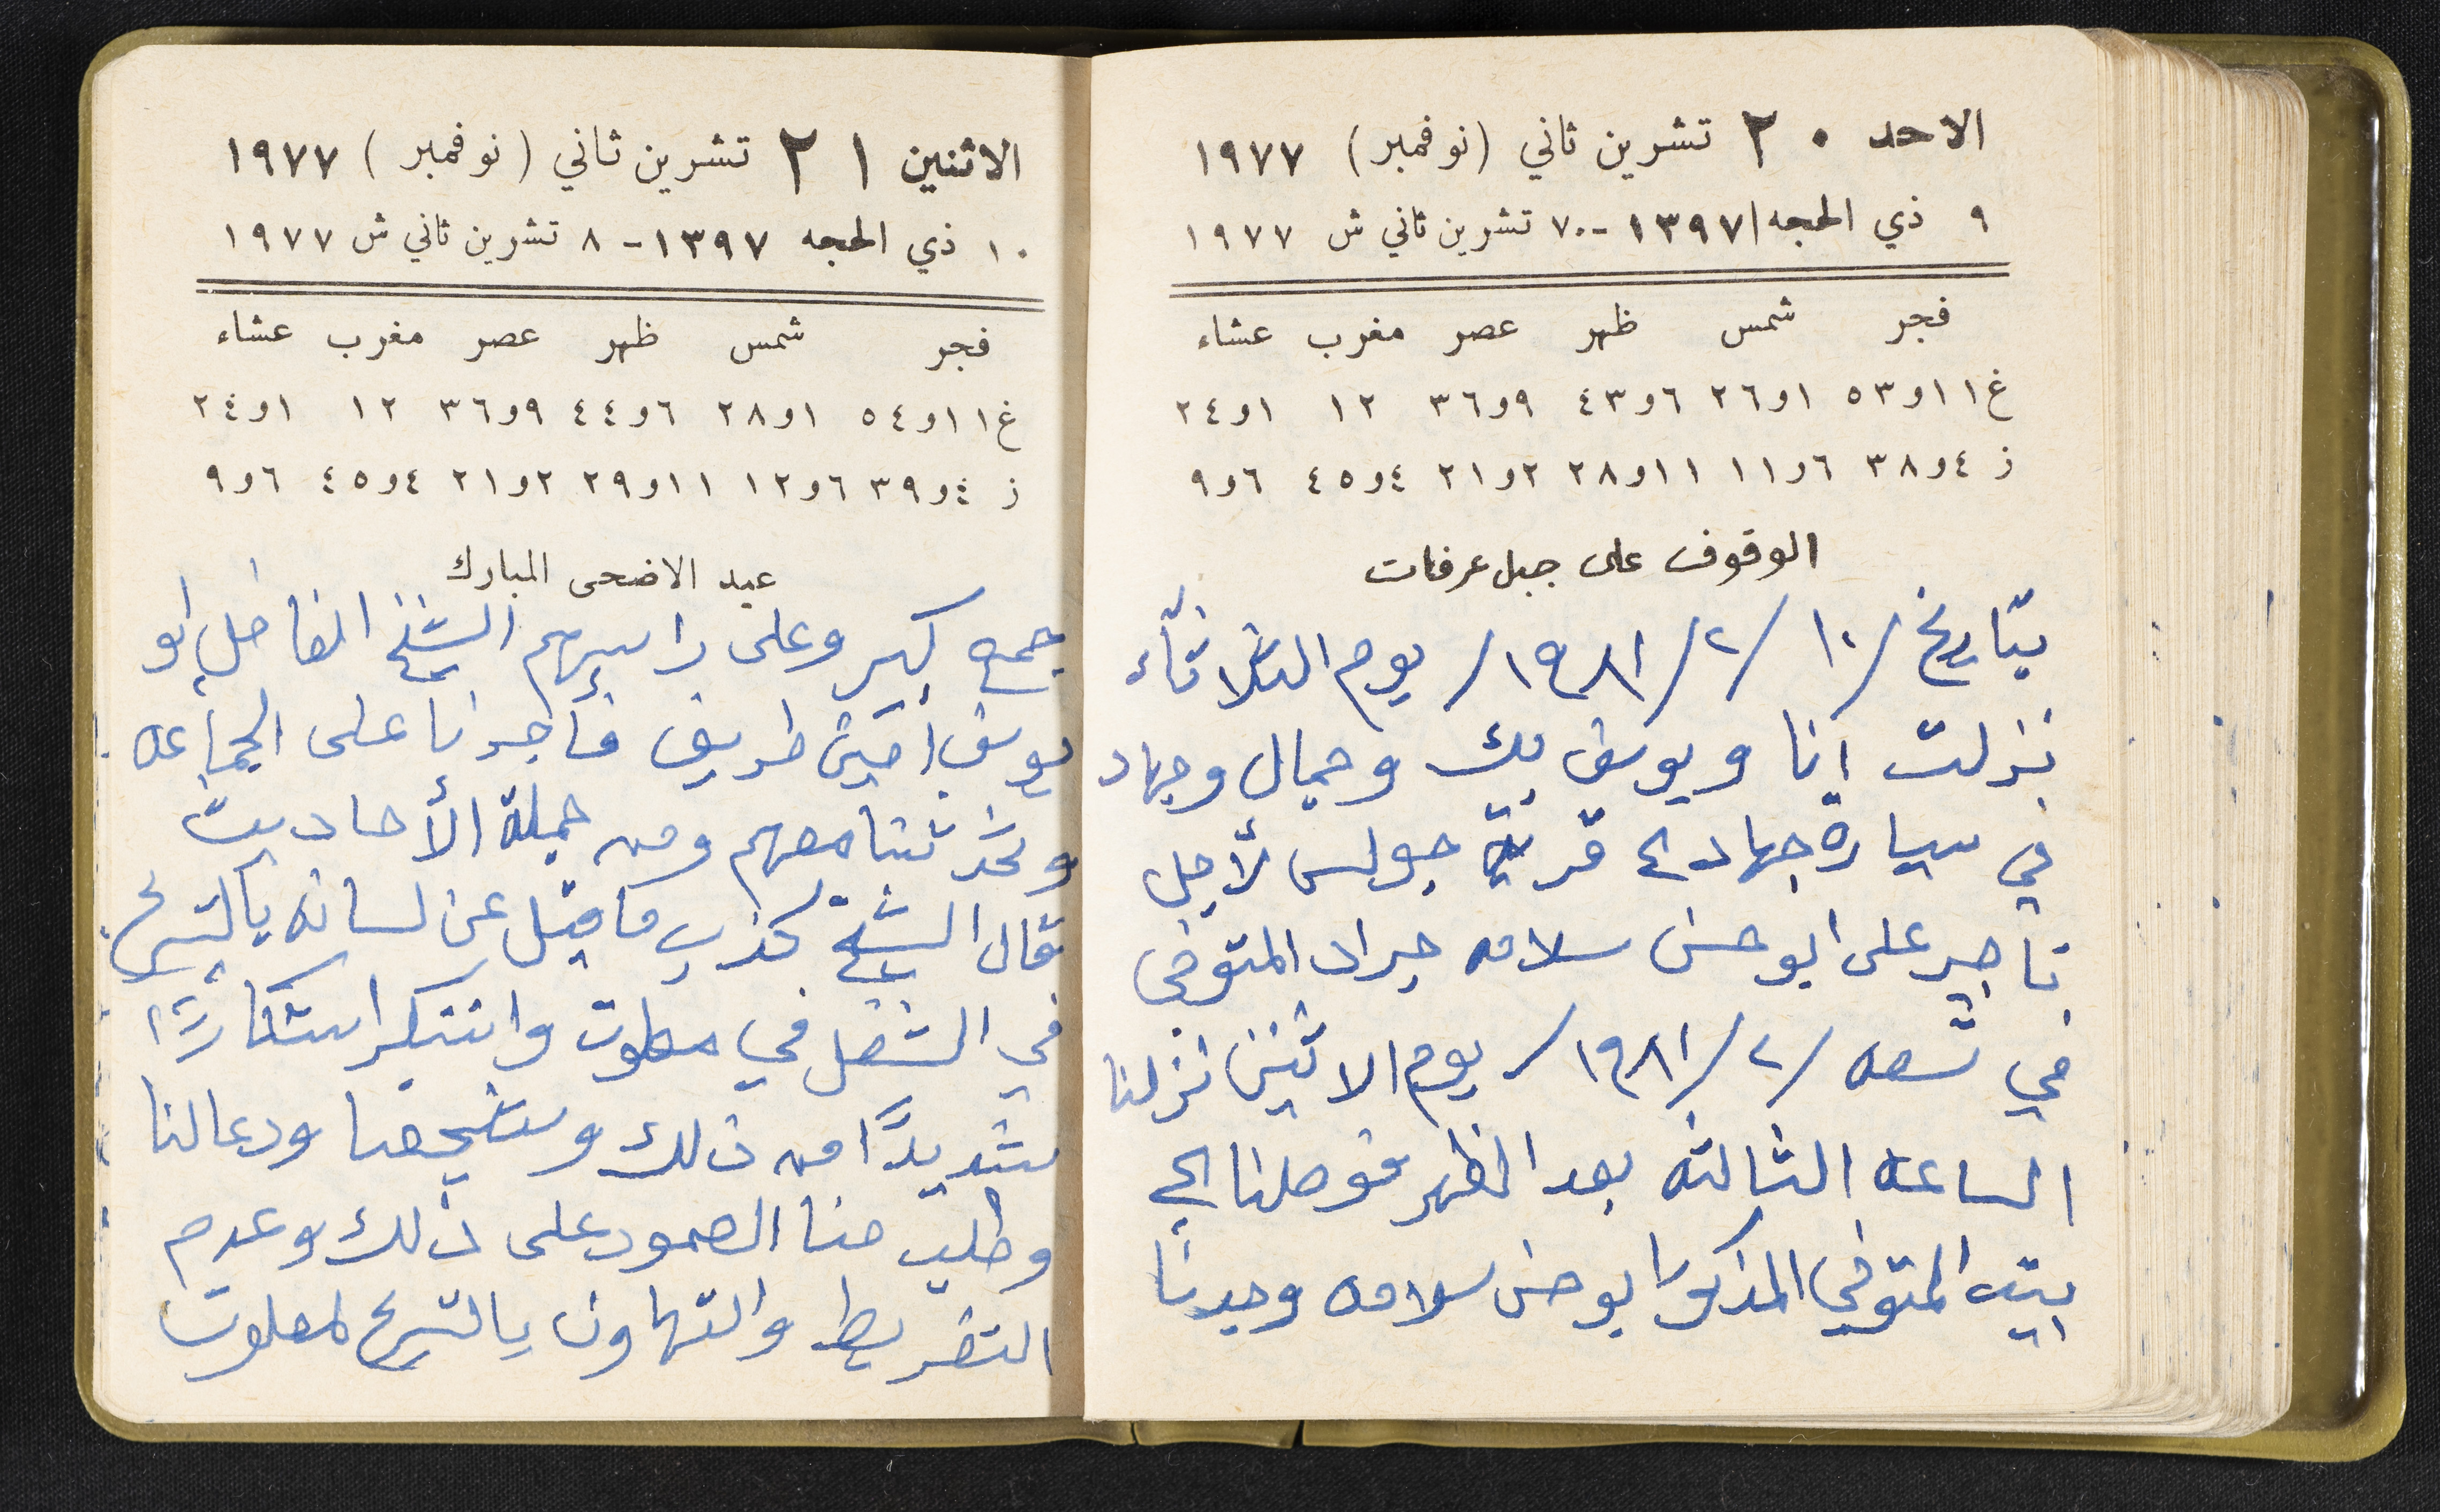 الاحد ٢٠ تشرين ثاني (نوفمبر) ١٩٧٧
٩ ذي الحجه ١٣٩٧ - ٧ تشرين ثاني ش ١٩٧٧
فجر شمس ظهر عصر مغرب عشاء
غ ١١و٥٣ ١و٢٦ ٦و٤٣ ٩و٣٦ ١٢ ١و٢٤
ز ٤و٣٨ ٦و١١ ١١و٢٨ ٢و٢١ ٤و٤٥ ٦و٩
الوقوف على جبل عرفات
بتاريخ /١٠ /٢ /١٩٨١/ يوم الثلاثاء
نزلت انا و يوسف بك وجمال وجهاد
في سيارة جهاد الى قرية جولس لأجل
ناجر على ابو حسن سلامه جراد المتوفي
في تسعه /٢ /١٩٨١/ يوم الاثنين نزلنا
الساعه الثالثه بعد الظهر فوصلنا الى
بيته المتوفي المذكور ابو حسن سلامه وجدنا
الاثنين ٢١ تشرين ثاني (نوفمبر) ١٩٧٧
١٠ ذي الحجه ١٣٩٧ - ٨ تشرين ثاني ش ١٩٧٧
فجر شمس ظهر عصر مغرب عشاء
غ ١١و٥٤ ١و٢٨ ٦و٤٤ ٩و٣٦ ١٢ ١و٢٤
ز ٤و٣٩ ٦و١٢ ١١و٢٩ ٢و٢١ ٤و٤٥ ٦و٩
عيد الاضحى المبارك
جمع كبير وعلى راسهم الشيخ الفاضل ابو
يوسف امين طريف فاجرنا على الجماعه
وتحدثنا معهم ومن جملة الأحاديث
قال الشيخ كذب ما قيل عن لسانه بالتسرح
في الشغل في معلوت واستنكر استنكارًا
شديدًا من ذلك ودعا لنا
وطلب منا الصمود على ذلك وعدم
التفريط والتهاون بالتسرح لمعلوت